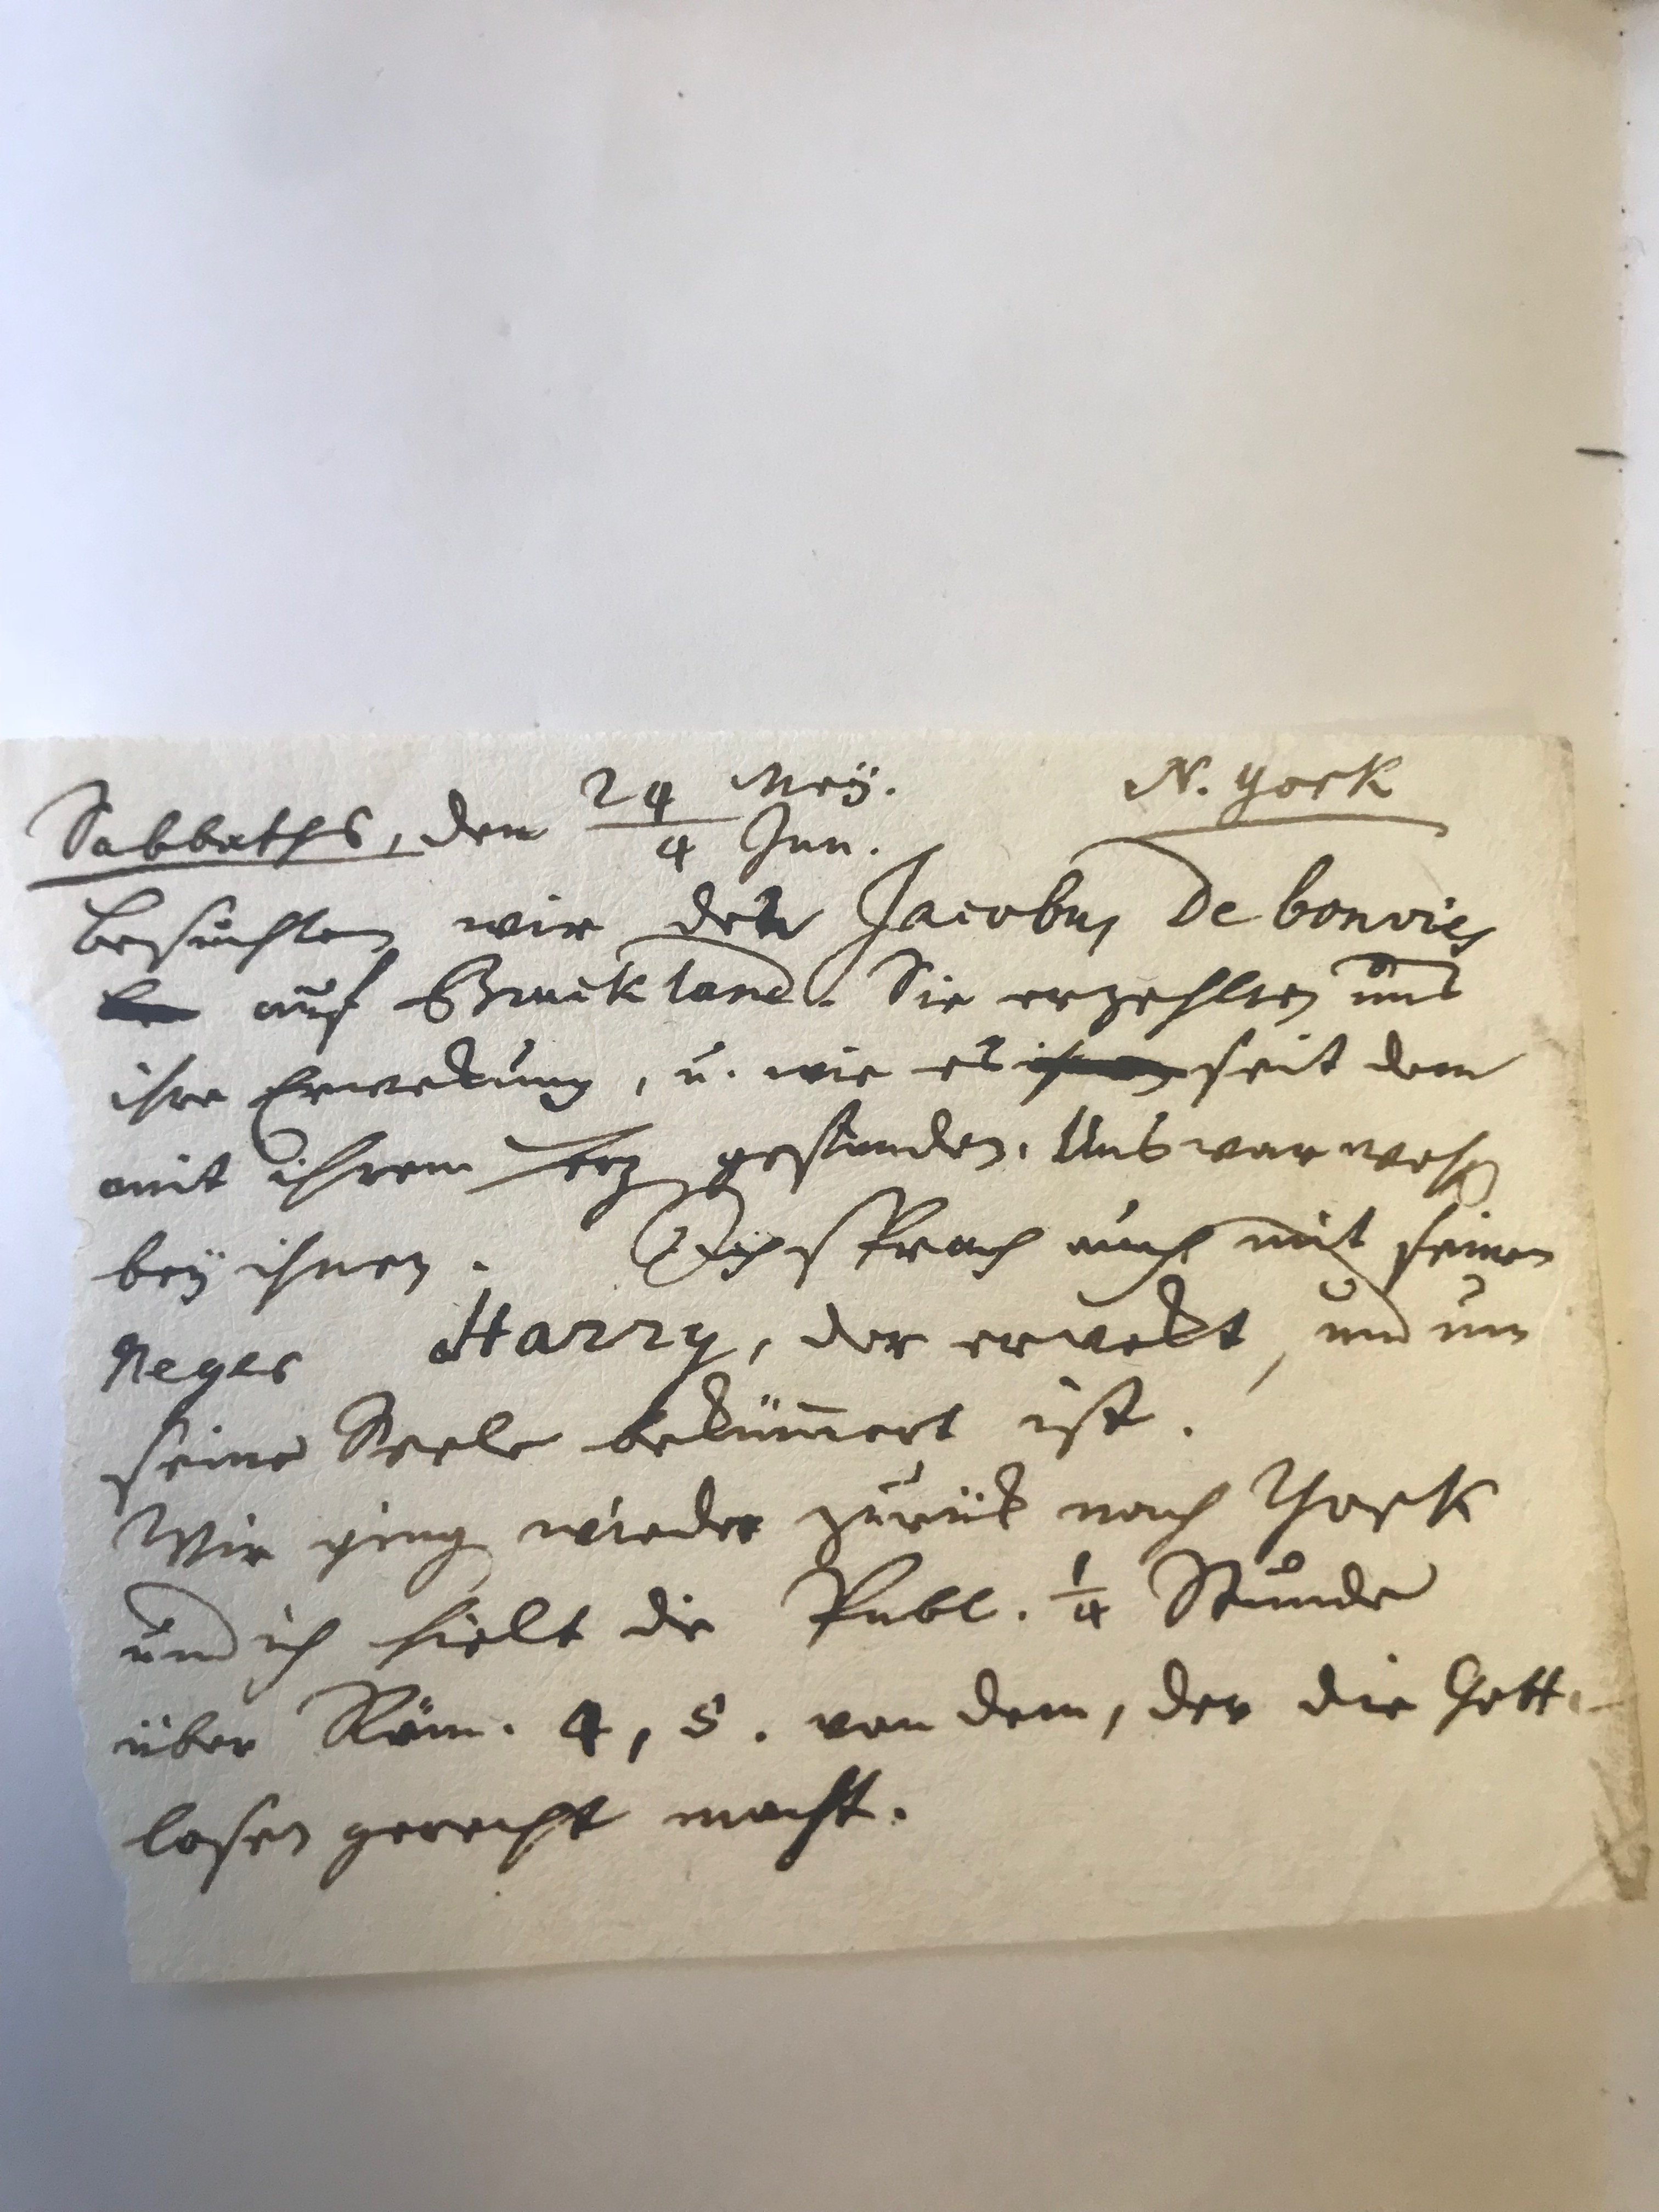 Sabbaths, den 24 Mey. / 4 Jun. N. York
besuchten wir den Jacobus De bonvies
auf Bruckland. Sie erzehlten uns
ihre Erwekung, u. wie es seit dem
mit ihrem Herz gestanden. Uns war wohl
bey ihnen. Ich sprach auch mit seinen
Neger Harry, der erwekt, und um
seine Seele bekümert ist.
Wir ging wieder zurük nach York
und ich hielt die Publ. 1/4 Stunde
über Röm. 4, 5. von dem, der die Gott-
losen gerecht macht.